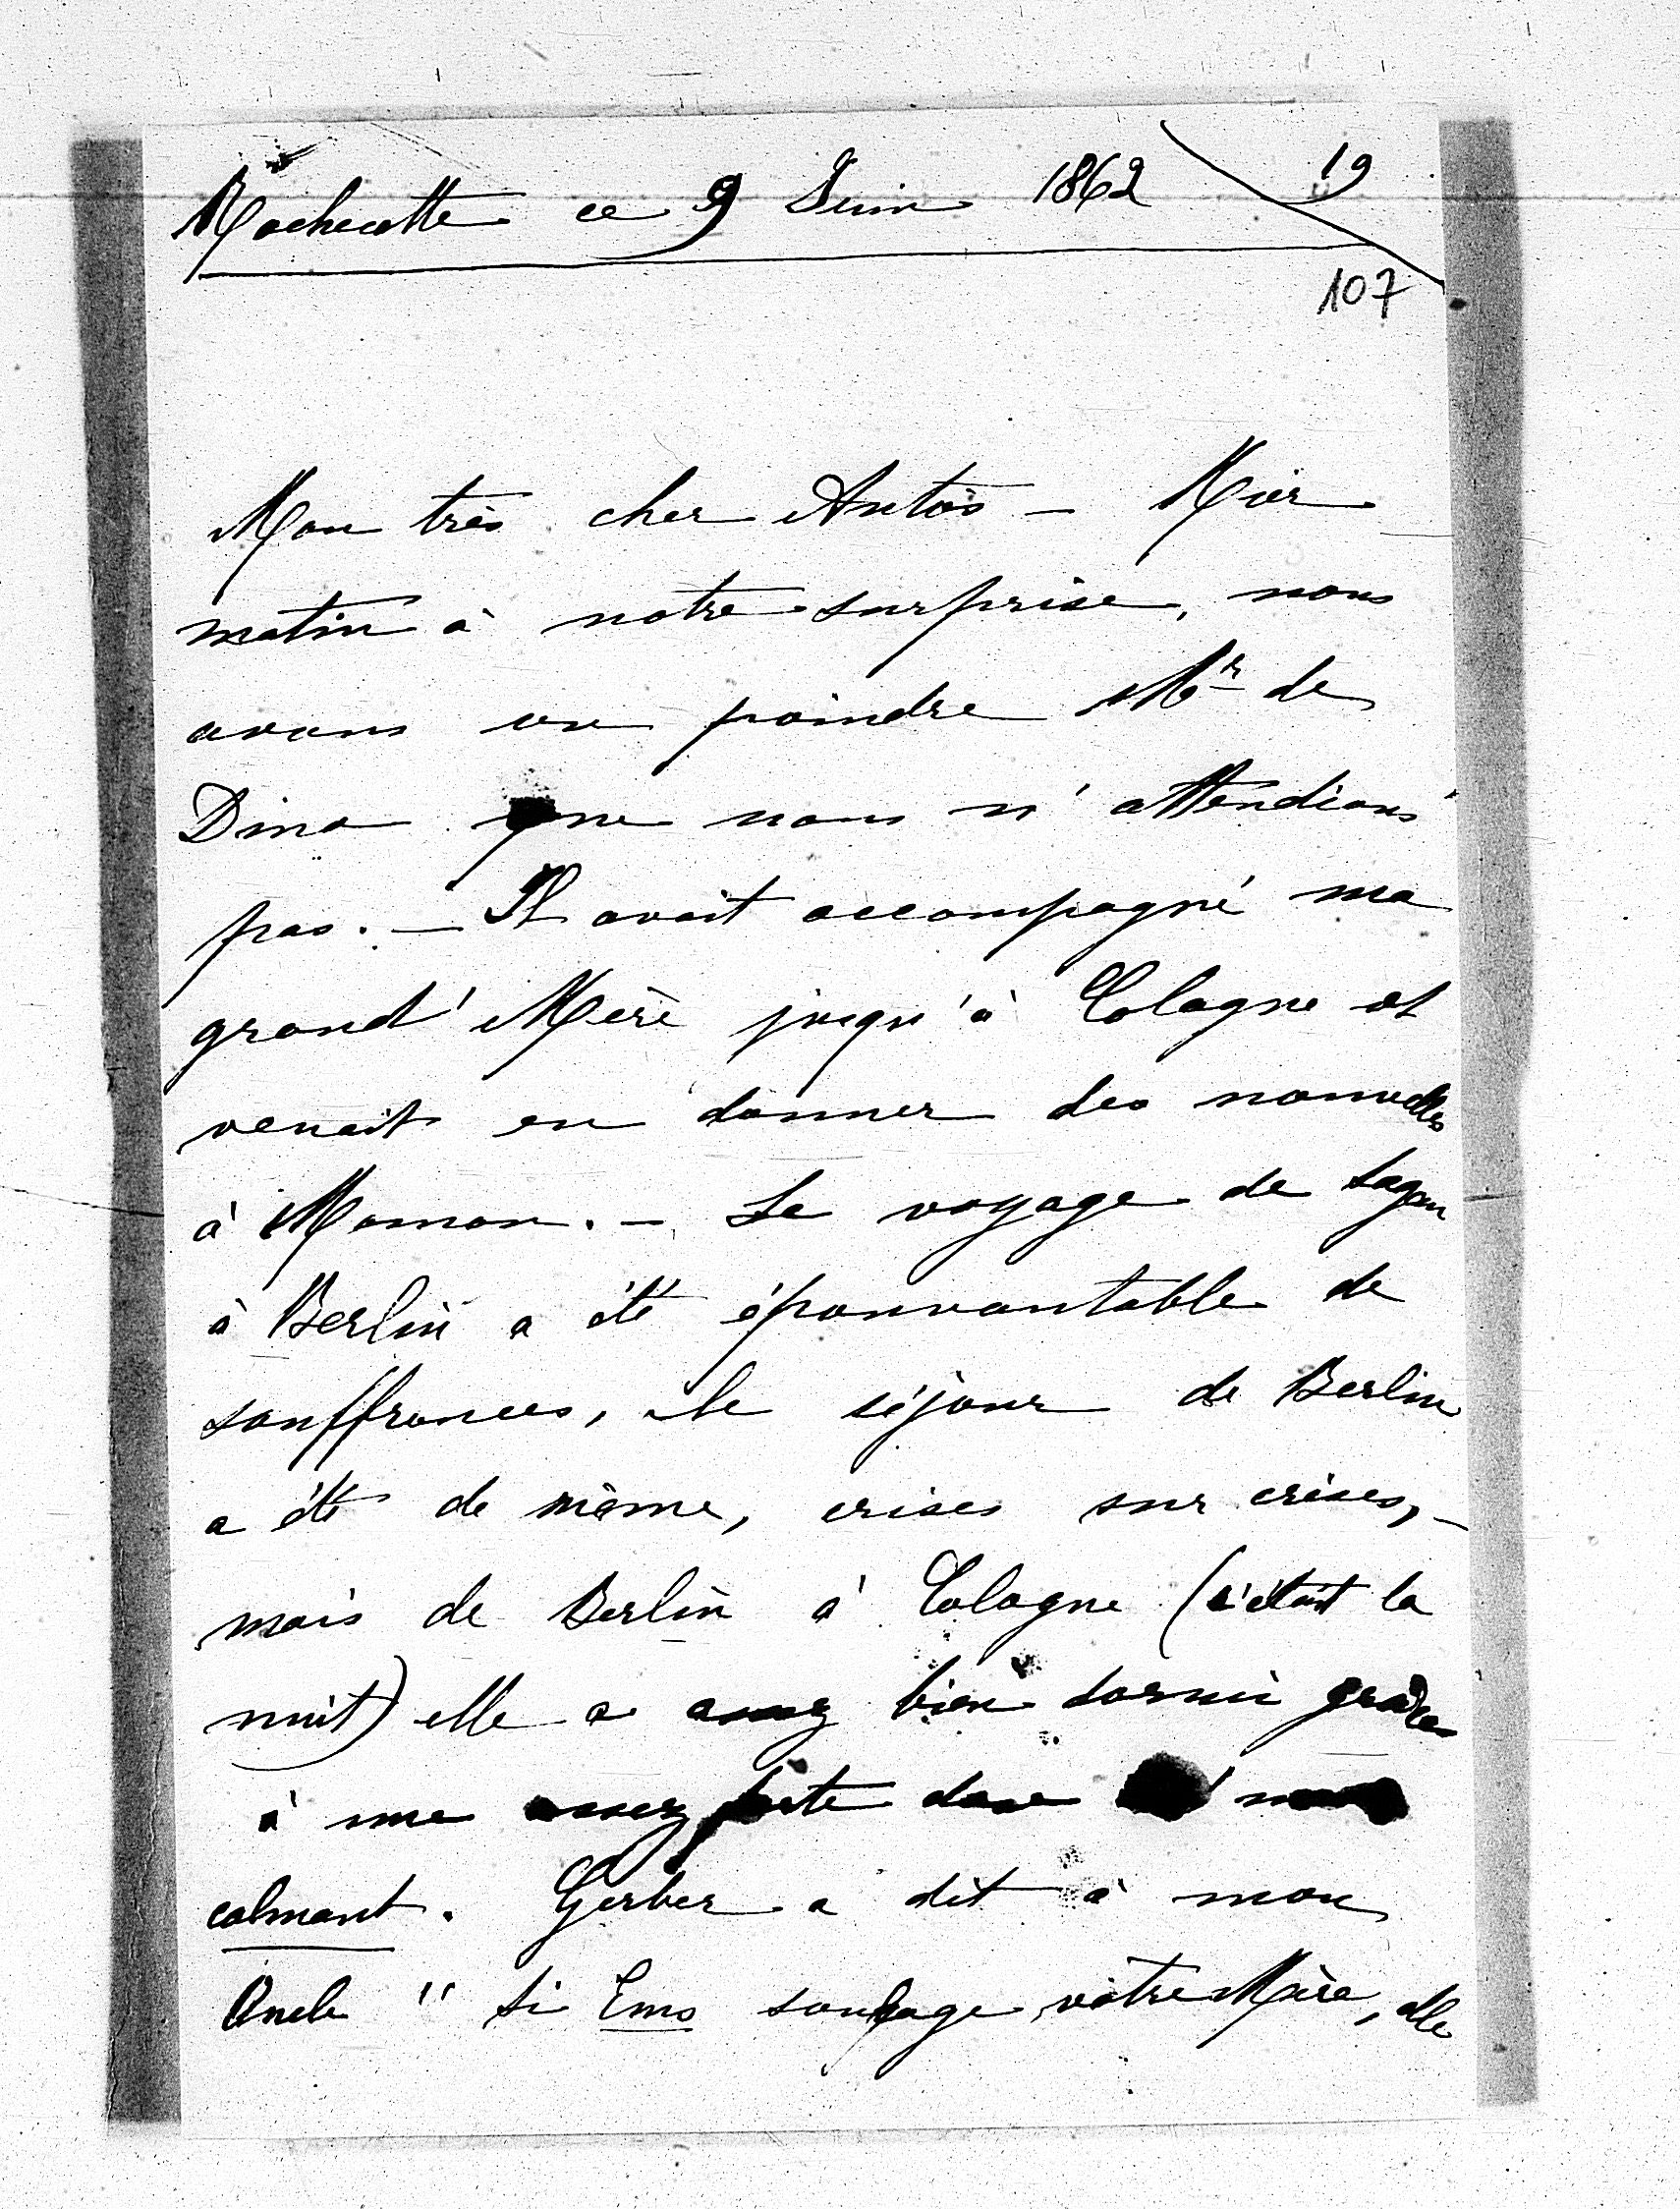 Rochecotte ce 9 Juin 1862 19
107
Mon très cher Antos — Hier
matin à notre surprise, nous
avons vu poindre Mr de
Dino que nous n'attendions
pas. — Il avait accompagné ma
grand'Mère jusqu'à Cologne et
venait en donner des nouvelles
à Maman. — Le voyage de Sagan
à Berlin a été épouvantable de
souffrances, le séjour de Berlin
a été de même, crises sur crises, —
mais de Berlin à Cologne (c'était la
nuit) elle a assez bien dormi grâce
à une assez forte dose
calmant. Gerber a dit à mon
Oncle " Si Ems soulage votre Mère, elle